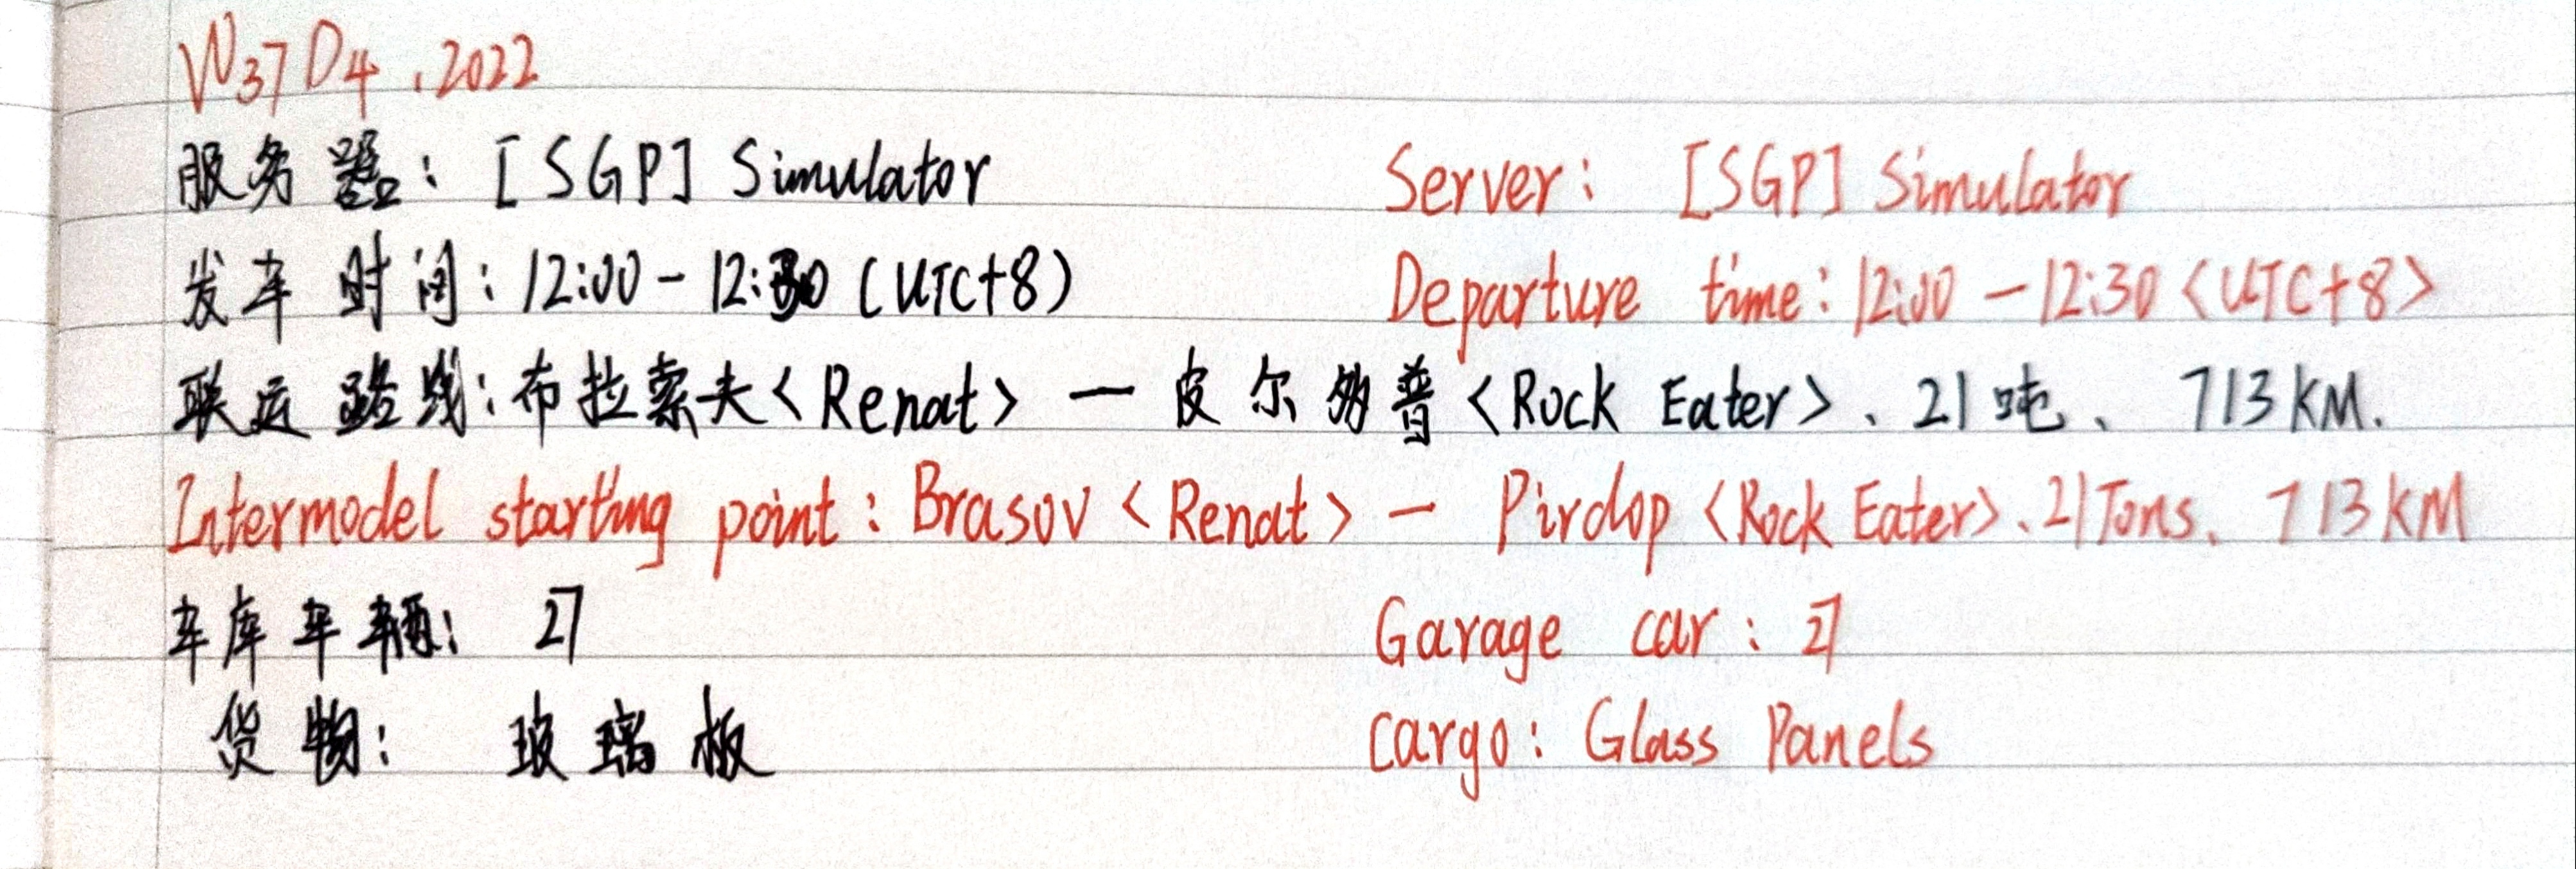 W37D4.2022
服务器：[SGP] Simulator Server: [SGP] Simulator
发车时间：12:00-12:30 (UTC+8) Departure time: 12:00-12:30 <UTC+8>
联运路线：布拉索夫<Renat> — 皮尔多普<Rock Eater>、21吨、713KM.
Intermodel starting point: Brasov <Renat> - Pirdop <Rock Eater>、21Tons、713KM
车库车辆：27 Garage car: 27
货物：玻璃板 cargo: Glass Panels